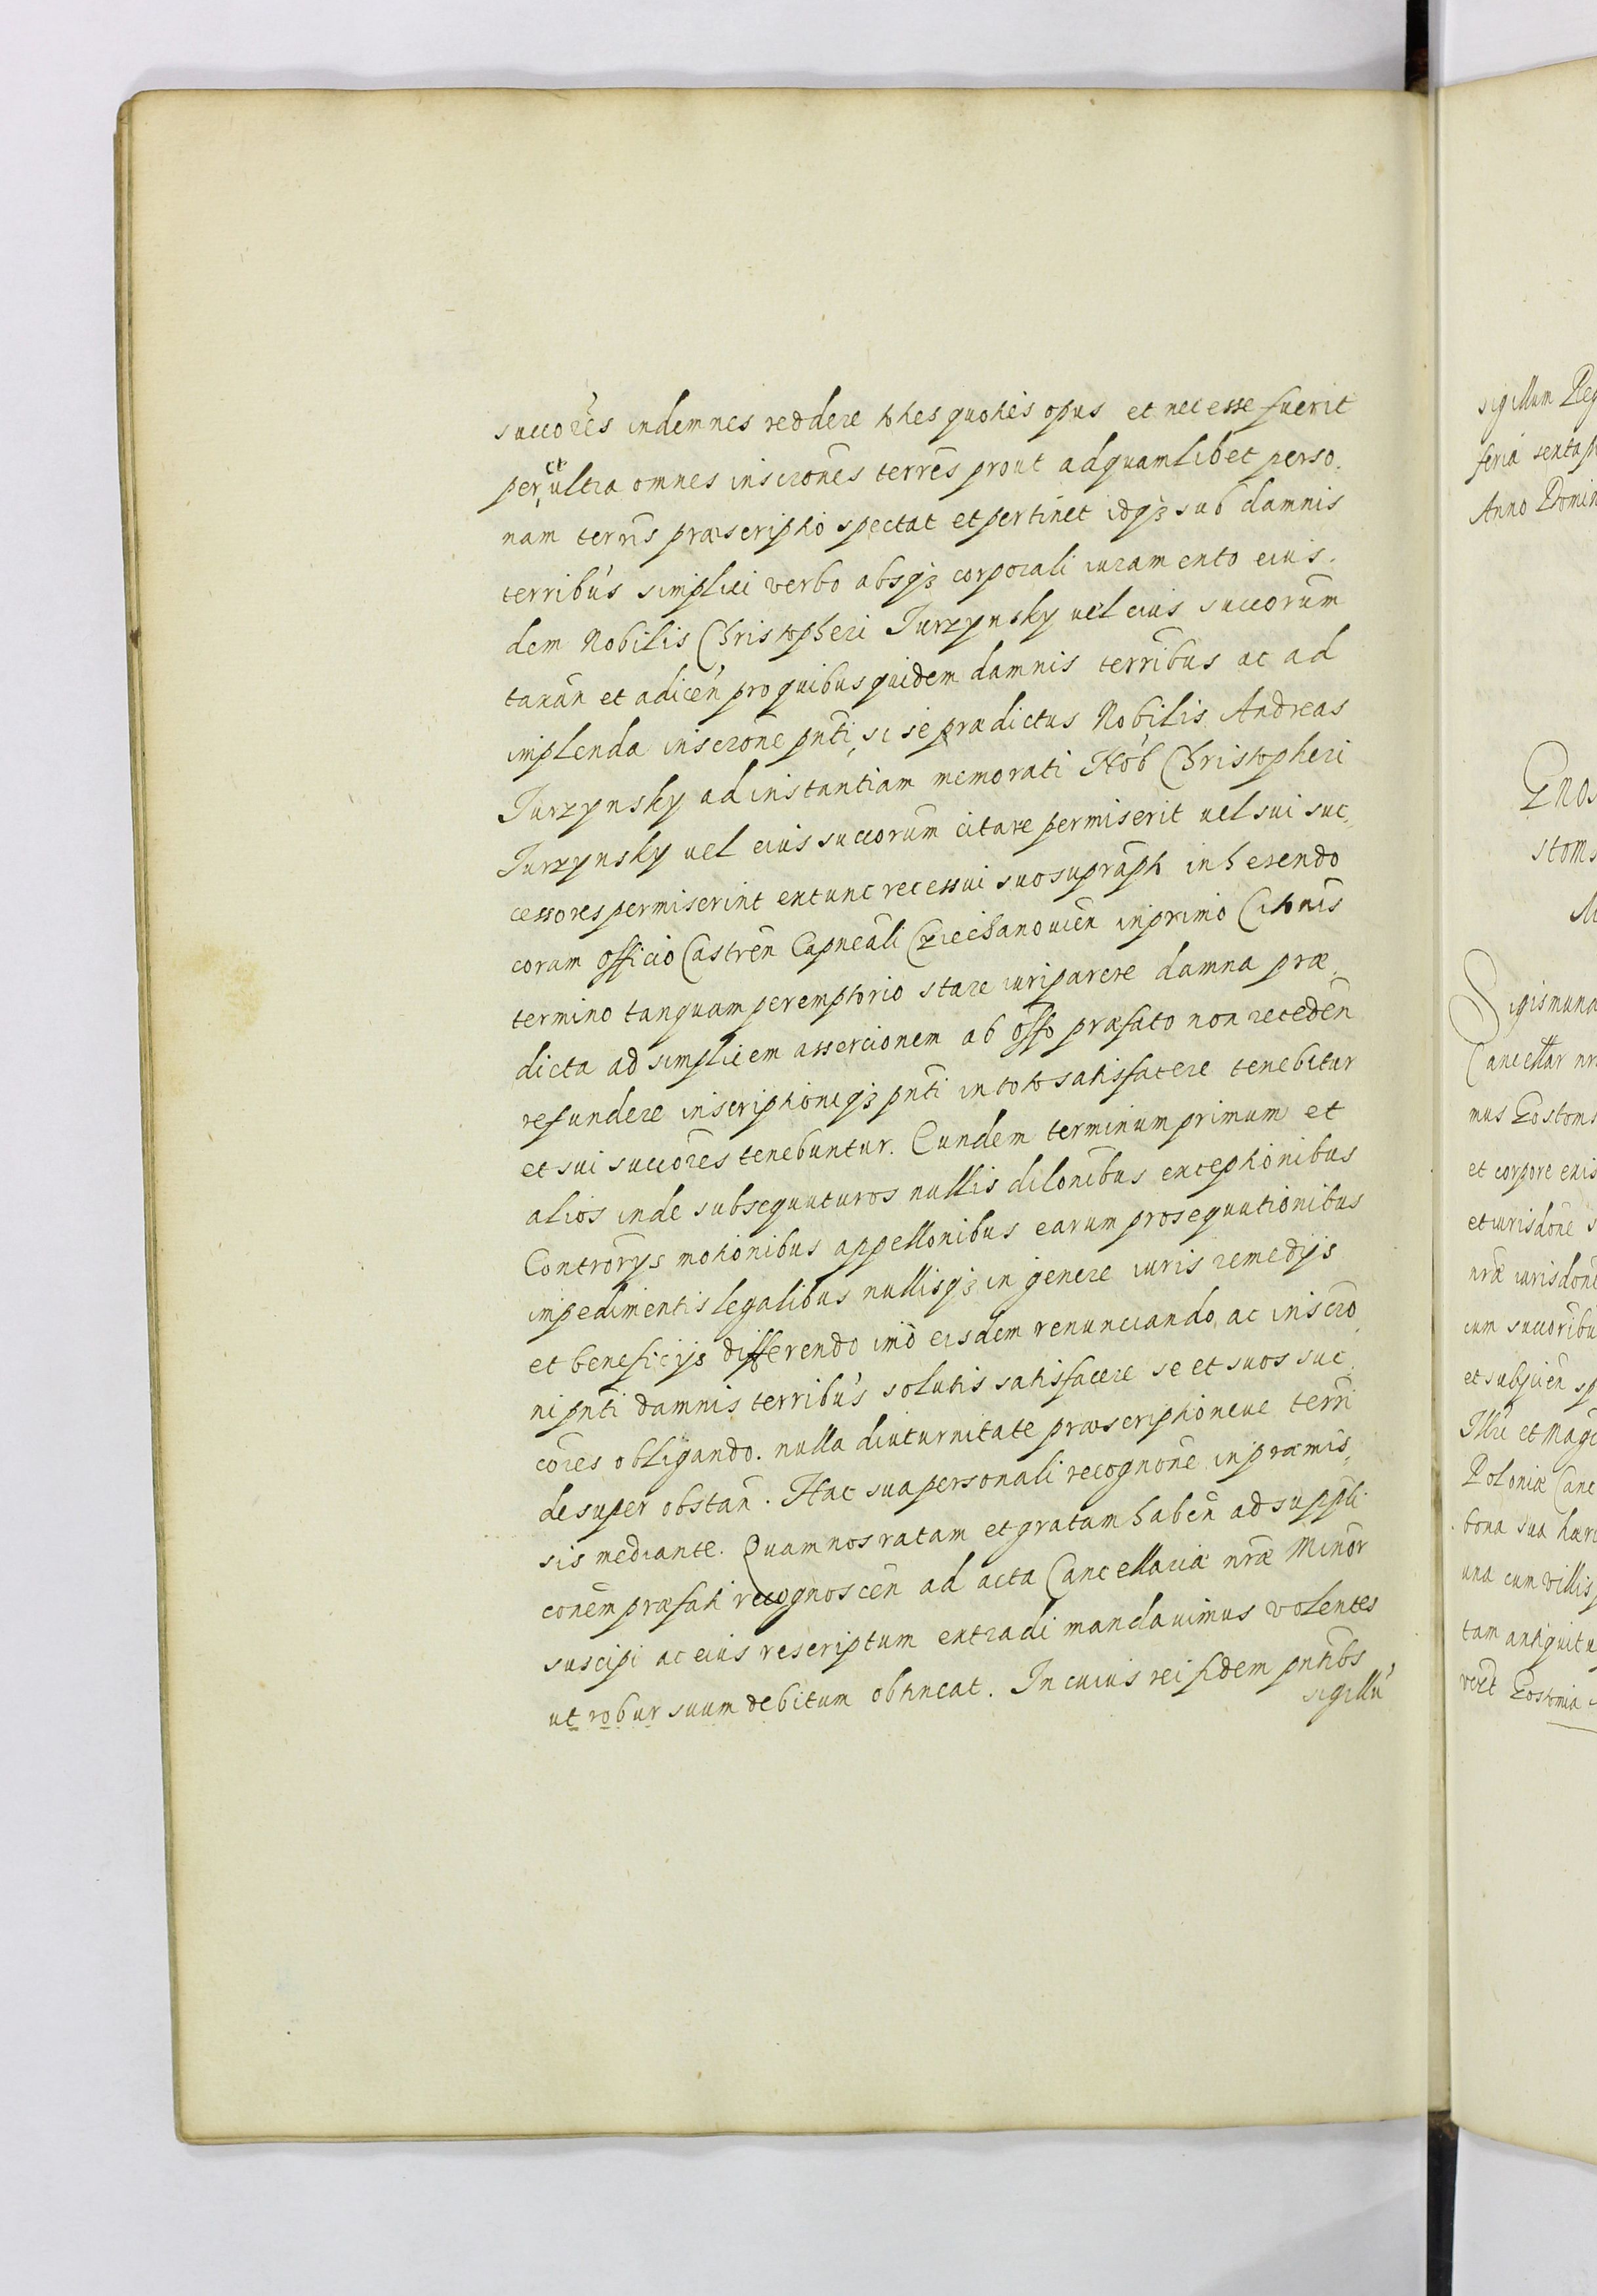 succores indemnes reddere toties quoties opus et necesse fuerit
per et ultra omnes inscrones terres prout ad quamlibet perso,
nam terris præscriptio spectat et pertinet idqȝ sub damnis
terribus simplici verbo absqȝ corporali iuramento eius.
dem Nobilis Christopheri Jurzynsky vel eius succorum
taxan et adicen pro quibus quidem damnis terribus ac ad
implenda inscrone pnti, si se prædictus Nobilis Andreas
Jurzynsky ad instantiam memorati Nob Christopheri
Jurzynsky vel eius succorum citare permiserit vel sui suc,
cessores permiserint extunc recessui suo suprapti inherendo
coram officio Castren Capneali Cziechanouien in primo Citonis
termino tanquam peremptorio stare iuri parere damna præ,
dicta ad simplicem assercionem ab offo præfato non receden
refundere inscriptioniqȝ pnti in toto satisfacere tenebitur
et sui succores tenebuntur. Eundem terminum primum et
alios inde subsequuturos nullis dilonibus exceptionibus
Controrys motionibus appellonibus earum prosequutionibus
impedimentis legalibus nullisqȝ in genere iuris remedijs
et beneficijs differendo imo eisdem renunciando, ac inscro,
ni pnti damnis terribus solutis satisfacere se et suos suc,
cores obligando. nulla diuturnitate præscriptioneue terri
desuper obstan. Hac sua personali recognone in præmis,
sis mediante. Quam nos ratam et gratam haben ad suppli
conem præfati recognoscen ad acta Cancellariæ nræ Minor
suscipi ac eius rescriptum extradi mandauimus volentes
ut robur suum debitum obtineat. In cuius rei fidem pntibs
sigillu
sigillum Reg
feria sexta p
Anno Domin
stoms
Sigismund
Cancellar nr
mus Gostoms
et corpore exis
et iurisdone s
nræ iurisdone
cum succoribu
et subijcien sp
Illri et Mag
Poloniæ Canc
bona sua hær
una cum villis
tam antiquitu
Gostomia